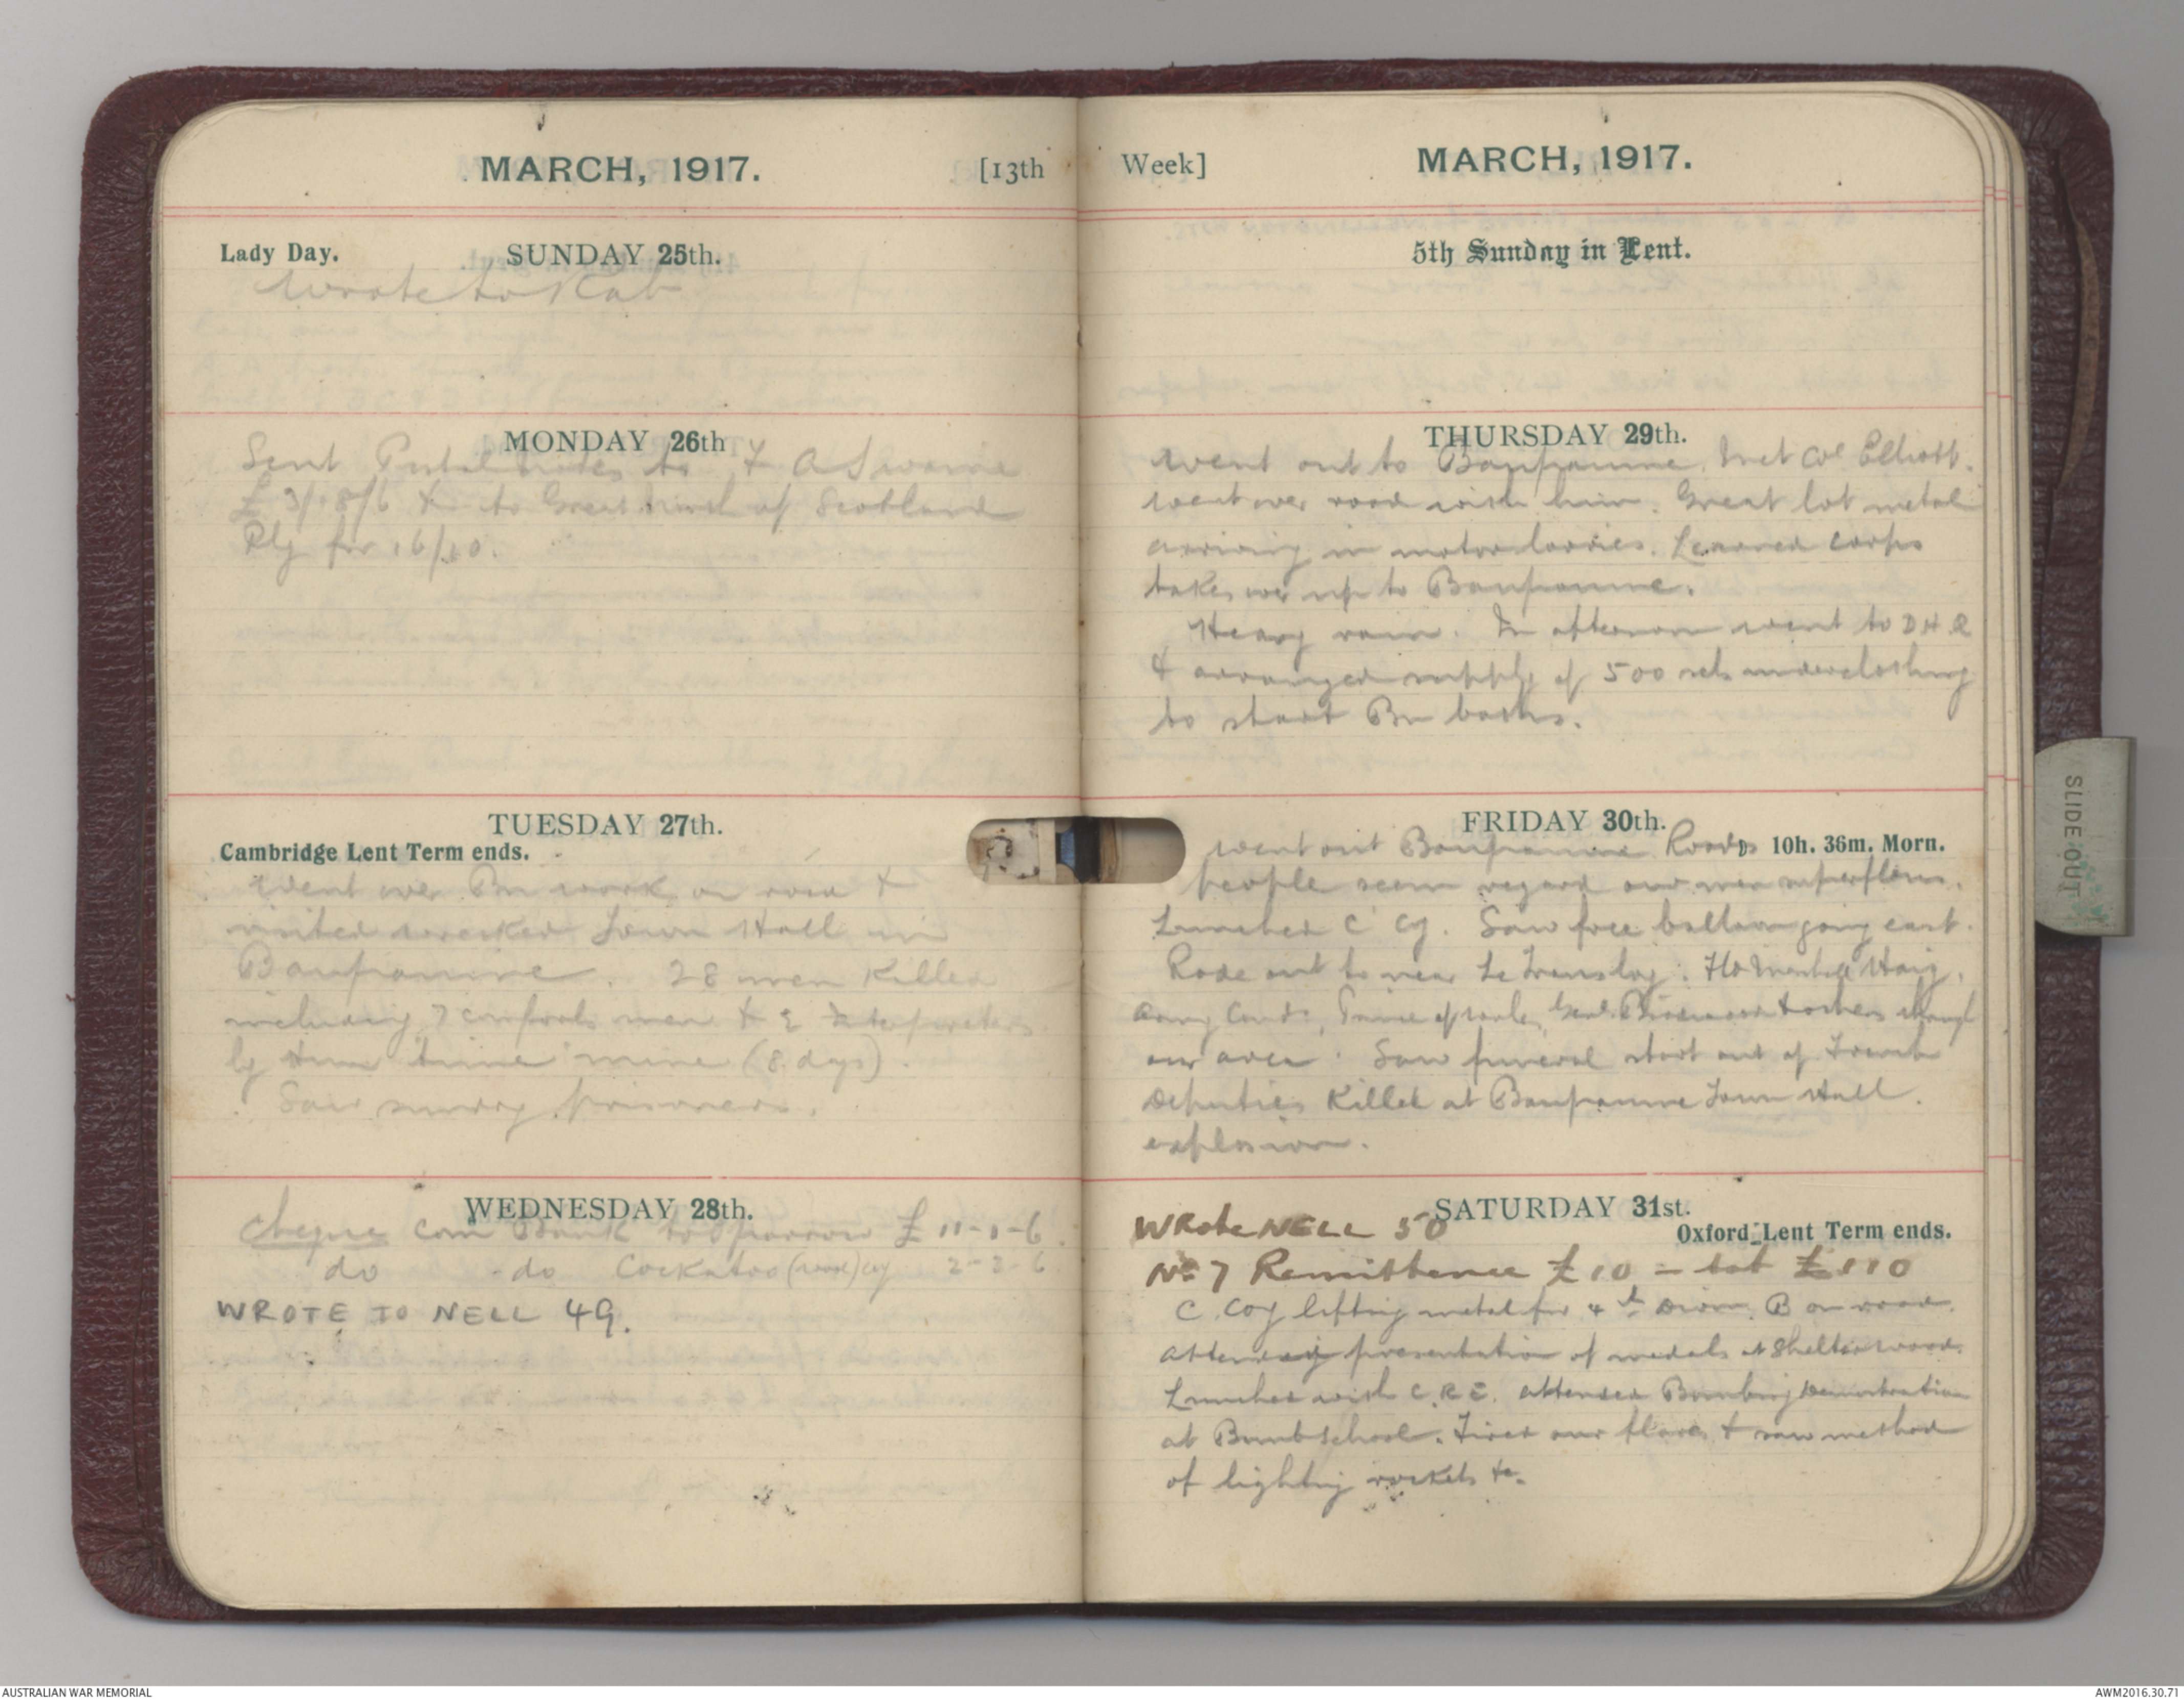 MARCH, 1917. [13th
Lady Day. SUNDAY 25th.
Wrote to Kab
MONDAY 26th
Sent Postal notes to F A Swaine
£ 3/18/6 & to Great North of Scotland
Rly for 16/10.
TUESDAY 27th.
Cambridge Lent Term ends.
Went over Bn work on road &
visited wrecked Town Hall in
Bapaume. 28 men killed
including 7 comforts men & 2 Interpreters
by Hun time mine (8 days).
Saw sundry prisoners.
WEDNESDAY 28th.
cheque Com Bank to Sparrow £ 11-1-6.
do - do Cockatoo (road) coy 2-2-6
WROTE TO NELL 49.
Week] MARCH, 1917.
5th Sunday in Lent.
THURSDAY 29th.
Went out to Bapaume. Met Col Elliott.
Went over road with him. Great lot metal
arriving in motor lorries. Learned corps
takes over up to Bapaume.
Heavy rain. In afternoon went to D H Q
& arranged supply of 500 sets underclothing
to start Bn baths.
FRIDAY 30th.
☽ 10h. 36m. Morn.
Went out Bapaume Road
people seem regard our men superfluous.
Lunched C Cy. Saw free balloon going east.
Rode out to near Le Transloy. Fld Marshall Haig,
Army Comdr, Prince of Wales, Genl Birdwood & others through
our area. Saw funeral start out of French
Deputies killed at Bapaume Town Hall
explosion.
SATURDAY 31st.
Oxford Lent Term ends.
WRote NELL 50
No 7 Remittance £10 = tot £110
C. Coy lifting metal for 4th Divn. B on road.
Attended presentation of medals at Shelter wood.
Lunched with C.R.E. attended Bombing Demonstration
at Bomb School. Fired our flares & saw method
of lighting rockets &c.
SLIDE OUT
AUSTRALIAN WAR MEMORIAL
AWM2016.30.71